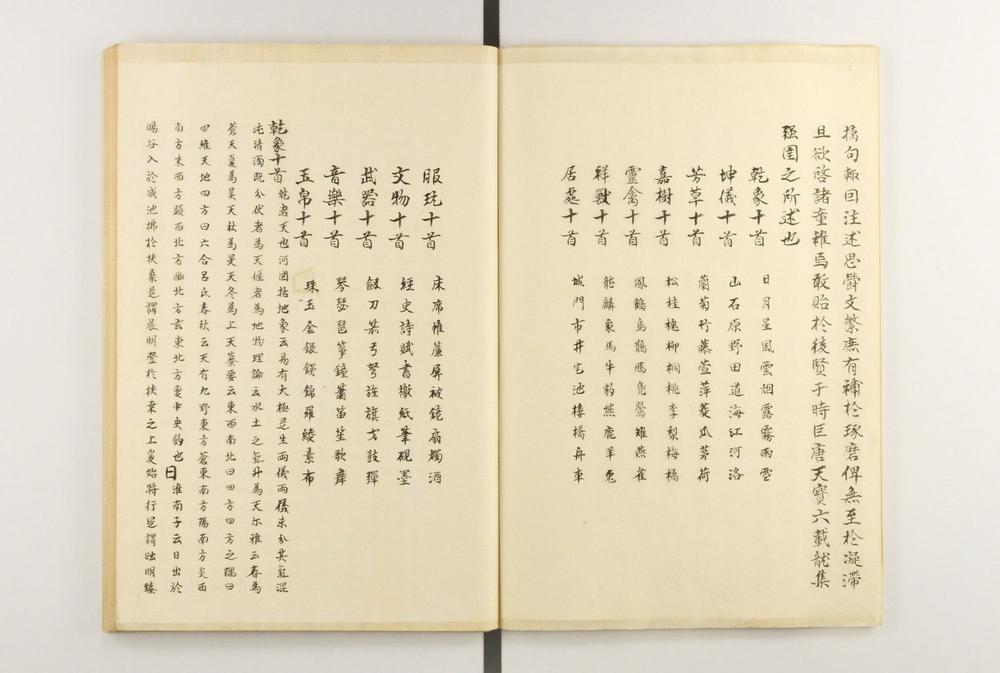 摛句輙因注述思鬱文繁庶有補於琢磨俾無至於凝滯
且欲啓諸童稚焉敢貽於後賢于時巨唐天寶六載龍集
强圉之所述也
乾象十首 日月星風雲烟露霧雨雪
坤儀十首 山石原野田道海江河洛
芳草十首 蘭菊竹藤萱萍菱瓜茅荷
嘉樹十首 松桂槐柳桐桃李梨梅橘
靈禽十首 鳳鶴烏鵲鴈鳧鶯雉燕雀
祥獸十首 龍麟象馬牛豹熊鹿羊兎
居處十首 城門市井宅池樓橋舟車
服玩十首 床席帷簾屏被鏡扇燭酒
文物十首 經史詩賦書檄紙筆硯墨
武器十首 劔刀箭弓弩旌旗戈鼓彈
音樂十首 琴瑟琵箏鐘簫笛笙歌舞
玉帛十首 珠玉金銀錢錦羅綾素布
乾象十首 乾者天也河圖括地象云易有大極是生兩儀兩儀未分其氣混
沌清濁既分伏者為天偃者為地物理論云水土之氣升為天尓雅云春為
蒼天夏為昊天秋為旻天冬為上天纂要云東西南北曰四方四方之隅曰
四維天地四方曰六合呂氏春秋云天有九野東方蒼東南方陽南方炎西
南方朱西方顥西北方幽北方玄東北方變中央鈞也日淮南子云日出於
暘谷入於咸池拂於扶桑是謂晨明登於扶桒之上爰始將行是謂朏明臻